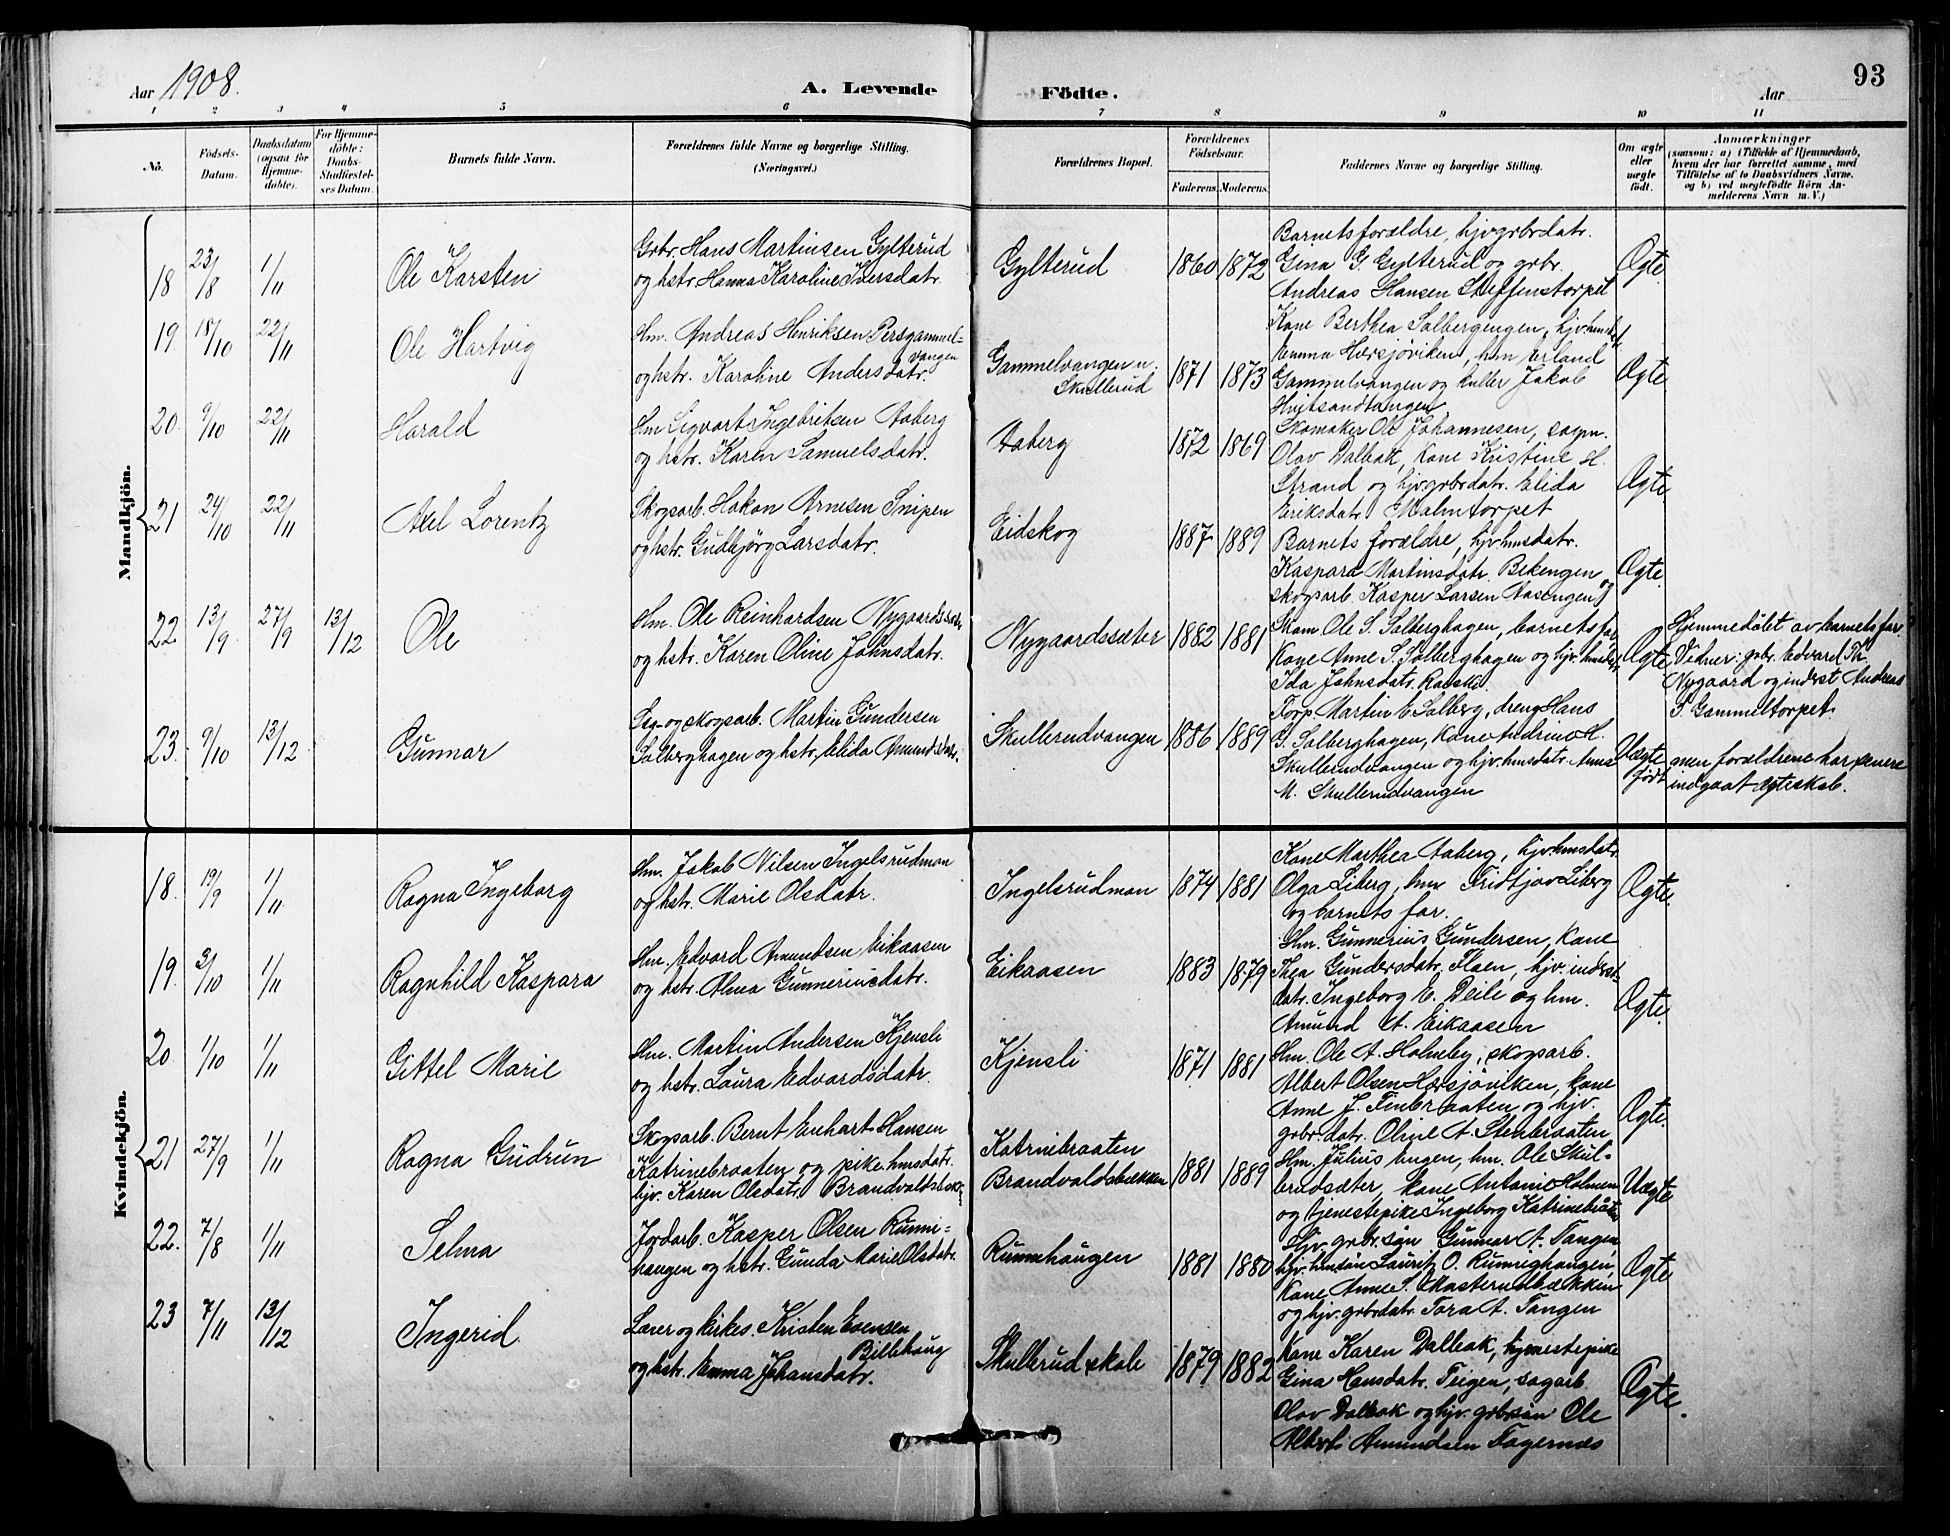 Aar 1908.
A. Levende Födte.
Aar
93
1 2 3 4 5 6 7 8 9 10 11
No.
Födsels-Datum.
Daabsdatum (ogsaa for Hjemmedöbte).
For Hjemmedöbte: Daabs-Stadfæstelses Datum.
Barnets fulde Navn.
Forældrenes fulde Navne og borgerlige Stilling.
(Næringsvei.)
Forældrenes Bopæl.
Forældrenes Födselsaar.
Faderens. Moderens.
Faddernes Navne og borgerlige Stilling.
Om ægte eller uægte födt.
Anmærkninger
(saasom: a) i Tilfælde af Hjemmedaab,
hvem der har forrettet samme, med
Tilföielse af to Daabsvidners Navne.
og b) ved uægtefödte Börn An-
melderens Navn m. V.)
Mandkjön.
18 23/8 1/11
Ole Karsten
Grbr. Hans Martinsen Gylterud
og hstr. Hanna Karoline Iversdatr.
Gylterud
1860 1872
Barnets forældre, hjv. grbrdatr.
Gina G. Gylterud og grbr.
Andreas Hansen Steffenstorpet
Ægte.
19. 18/10 22/11
Ole Hartvig
Hm. Andreas Henriksen Persgammel-
vangen
og hstr. Karoline Andersdatr.
Gammelvangen u.
Skullerud
1871 1873
Kone Berthea Solbergengen, hjv. hmsdatr
Emma Hærsjöviken, hm Erland
Gammelvangen og Jakob
Hvitsandtangen
Ægte.
20. 9/10 22/11
Harald
Hm Sigvart Ingebritsen Aaberg
og hstr. Karen Samuelsdatr.
Aaberg
1872 1869
Skomaker Ole Johannesen,
Olav Dalbak, Kone Kristine H.
Strand og hjv. grbrdatr. Elida
Eriksdatr. Malmtorpet
Ægte.
21 24/10 22/11
Axel Lorentz
Skogsarb. Hakon Arnesen Snipen
og hstr. Gudbjörg Larsdatr.
Eidskog
1887 1889
Barnets forældre, hjv. hmsdatr.
Kaspara Martinsdatr. Bekengen og
skogsarb. Kasper Larsen Aasengen
Ægte.
22 13/9 27/9 13/12
Ole
Hm. Ole Reinhardsen Nygaardssæter
og hstr. Karen Oline Johnsdatr.
Nygaardssæter
1882 1881
Skom Ole S. Solberghagen, barnets far,
Kone Anne S. Solberghagen og hjv. hmsdatr
Ida Johnsdatr.
Ægte
Hjemmedöbt av barnets far.
Vidner: grbr. Edvard Th.
Nygaard og inderst Andreas
S. Gammeltorpet.
23. 9/10 13/12
Gunnar
Sag- og skogsarb. Martin Gundersen
Solberghagen og hstr. Elida Amundsdatr.
Skullerudvangen
1886 1889
Torp. Martin E. Solberg, dreng Hans
G. Solberghagen, Kone Andrine H.
Skullerudvangen og hjv. hmsdatr. Anna
M. Skullerudvangen
Uægte
födt
men forældrene har senere
indgaat ægteskab.
Kvindekjön.
18. 19/9 1/11
Ragna Ingeborg
Hm. Jakob Nilsen Ingelsrudmon
og hstr. Marie Olsdatr.
Ingelsrudmon
1874 1881
Kone Marthea Aaberg, hjv. hmsdatr.
Olga Liberg, hm Fridtjov Liberg
og barnets far.
Ægte.
19. 3/10 1/11
Ragnhild Kaspara
Hm. Edvard Amundsen Eikaasen
og hstr. Alma Gunneriusdatr.
Eikaasen
1883 1879
Hm. Gunnerius Gundersen, kone
Thea Gundersdatr. Flaen, hjv. inderst-
datr. Ingeborg E. Deili og hm.
Amund A. Eikaasen
Ægte.
20. 1/10 1/11
Gittel Marie
Hm. Martin Andersen Kjensli
og hstr. Laura Edvardsdatr.
Kjensli
1871 1881
Hm. Ole A. Holmeby, skogsarb.
Albert Olsen Hærsjöviken, kone
Anne J. Finbraaten og hjv.
grbr.datr. Oline A. Stenbraaten
Ægte.
21 27/9 1/11
Ragna Gudrun
Skogsarb. Bernt Enhart Hansen
Katrinebraaten og pike hmsdatr.
hjv. Karen Olsdatr. Brandvoldsbæk.
Katrinebraaten
Brandvoldsbækken
1881 1889
Hm. Julius Engen, hm. Ole Skul-
brudsæter, kone Antonie Holmen
og tjenestepike Ingeborg Katrinebraaten
Uægte
22. 7/8 1/11
Selma
Jordarb. Kasper Olsen Runni-
haugen og hstr. Gunda Marie Olsdatr.
Runnihaugen
1881 1880
Hjv. grbr.sön Gunnar A. Tangen,
hjv. hmsön Lauritz O. Runnighaugen,
Kone Anne S. Masterudbækken
og hjv. grbrdatr. Tora A. Tangen
Ægte
23 7/11 13/12
Ingerid
Lærer og kirkes. Kristen Evensen
Billehaug
og hstr. Emma Johansdatr.
Skullerud skole
1879 1882
Kone Karen Dalbak, tjenestepike
Gina Hansdatr. Teigen, sagarb.
Olav Dalbak og hjv. grbrsön Ole
Albert Amundsen Fagernæs
Ægte.